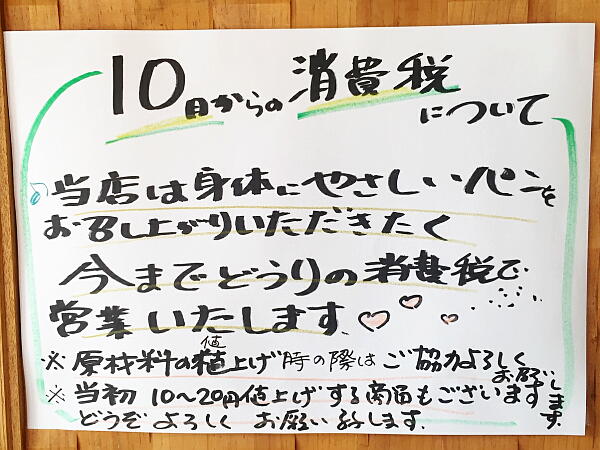 10日からの消費税
について
当店は身体にやさしいパンを
お召し上がりいただきたく
今までどうりの消費税で
営業いたします。
※原材料の値上げ時の際はご協力よろしくお願いします
※当初10～20円値上げする商品もございます。
どうぞよろしくお願い致します。